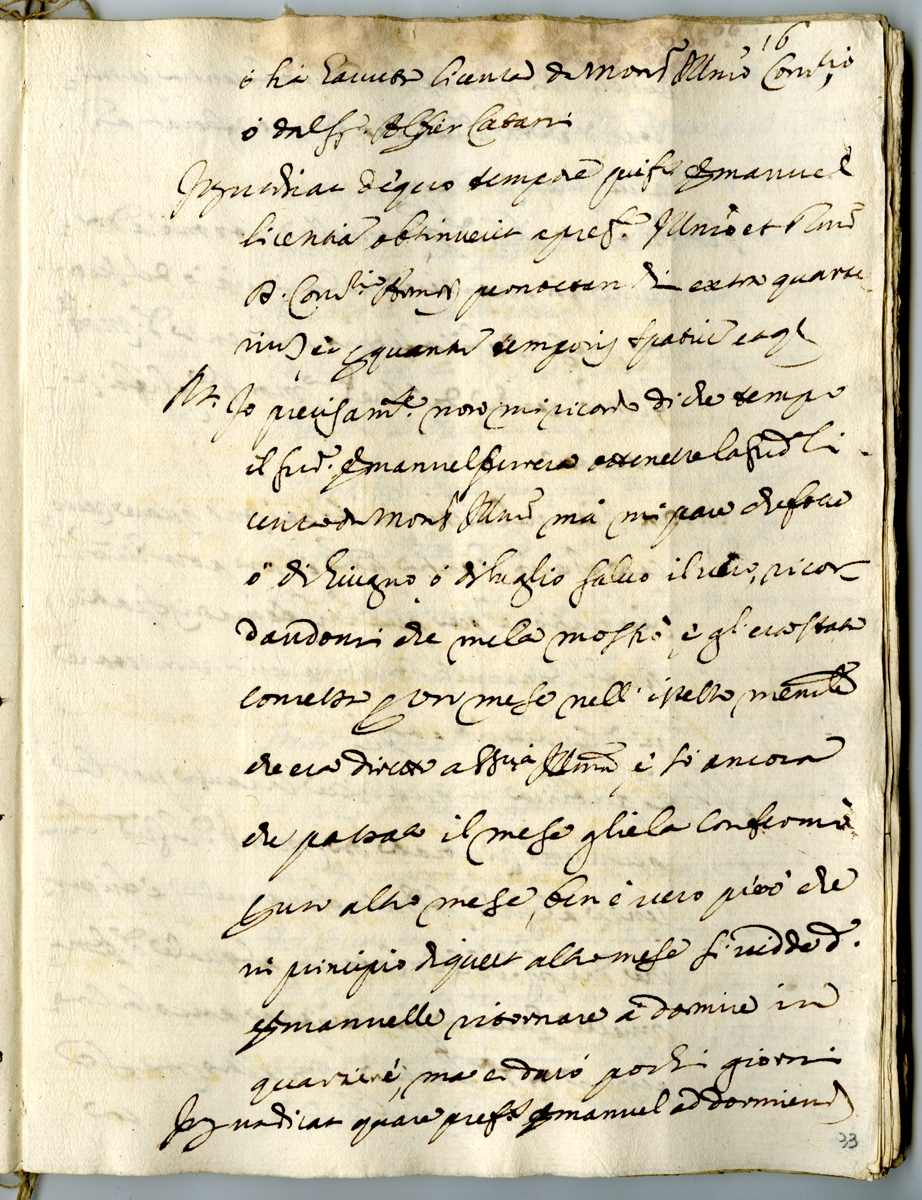 16
ò hà havuta licenza da Mons.r Ill.mo Com.rio
ò dal Sr. Alfier Catani
Int. ut dicat de quo tempore pref.s Emanuel
licentiam obtinuerit a pref.o Ill.mo et R.mo
D. Com.rio pernoctandi extra quarte
rium et per quantum temporis spatium
Rt. Io precisam.te non mi ricordo di che tempo
il sud.o Emanuel ottenette la sud.a li
cenza da Mons.r Ill.mo mà mi pare che fosse
ò di Giugno ò di luglio salvo il vero, ricor
dandomi che me la mostrò e gl'era stata
concessa per un mese nell'istesso memle
che era diretto a S.ria Ill.ma, e sò ancora
che passato il mese gliela confermò
per un altro mese, ben è vero però che
in principio di quest'altro mese si vidde d.o
Emanuelle ritornare à dormire in
quartiere, ma ci durò pochi giorni
Int. ut dicat quare pref.s Emanuel ad dormiend
33